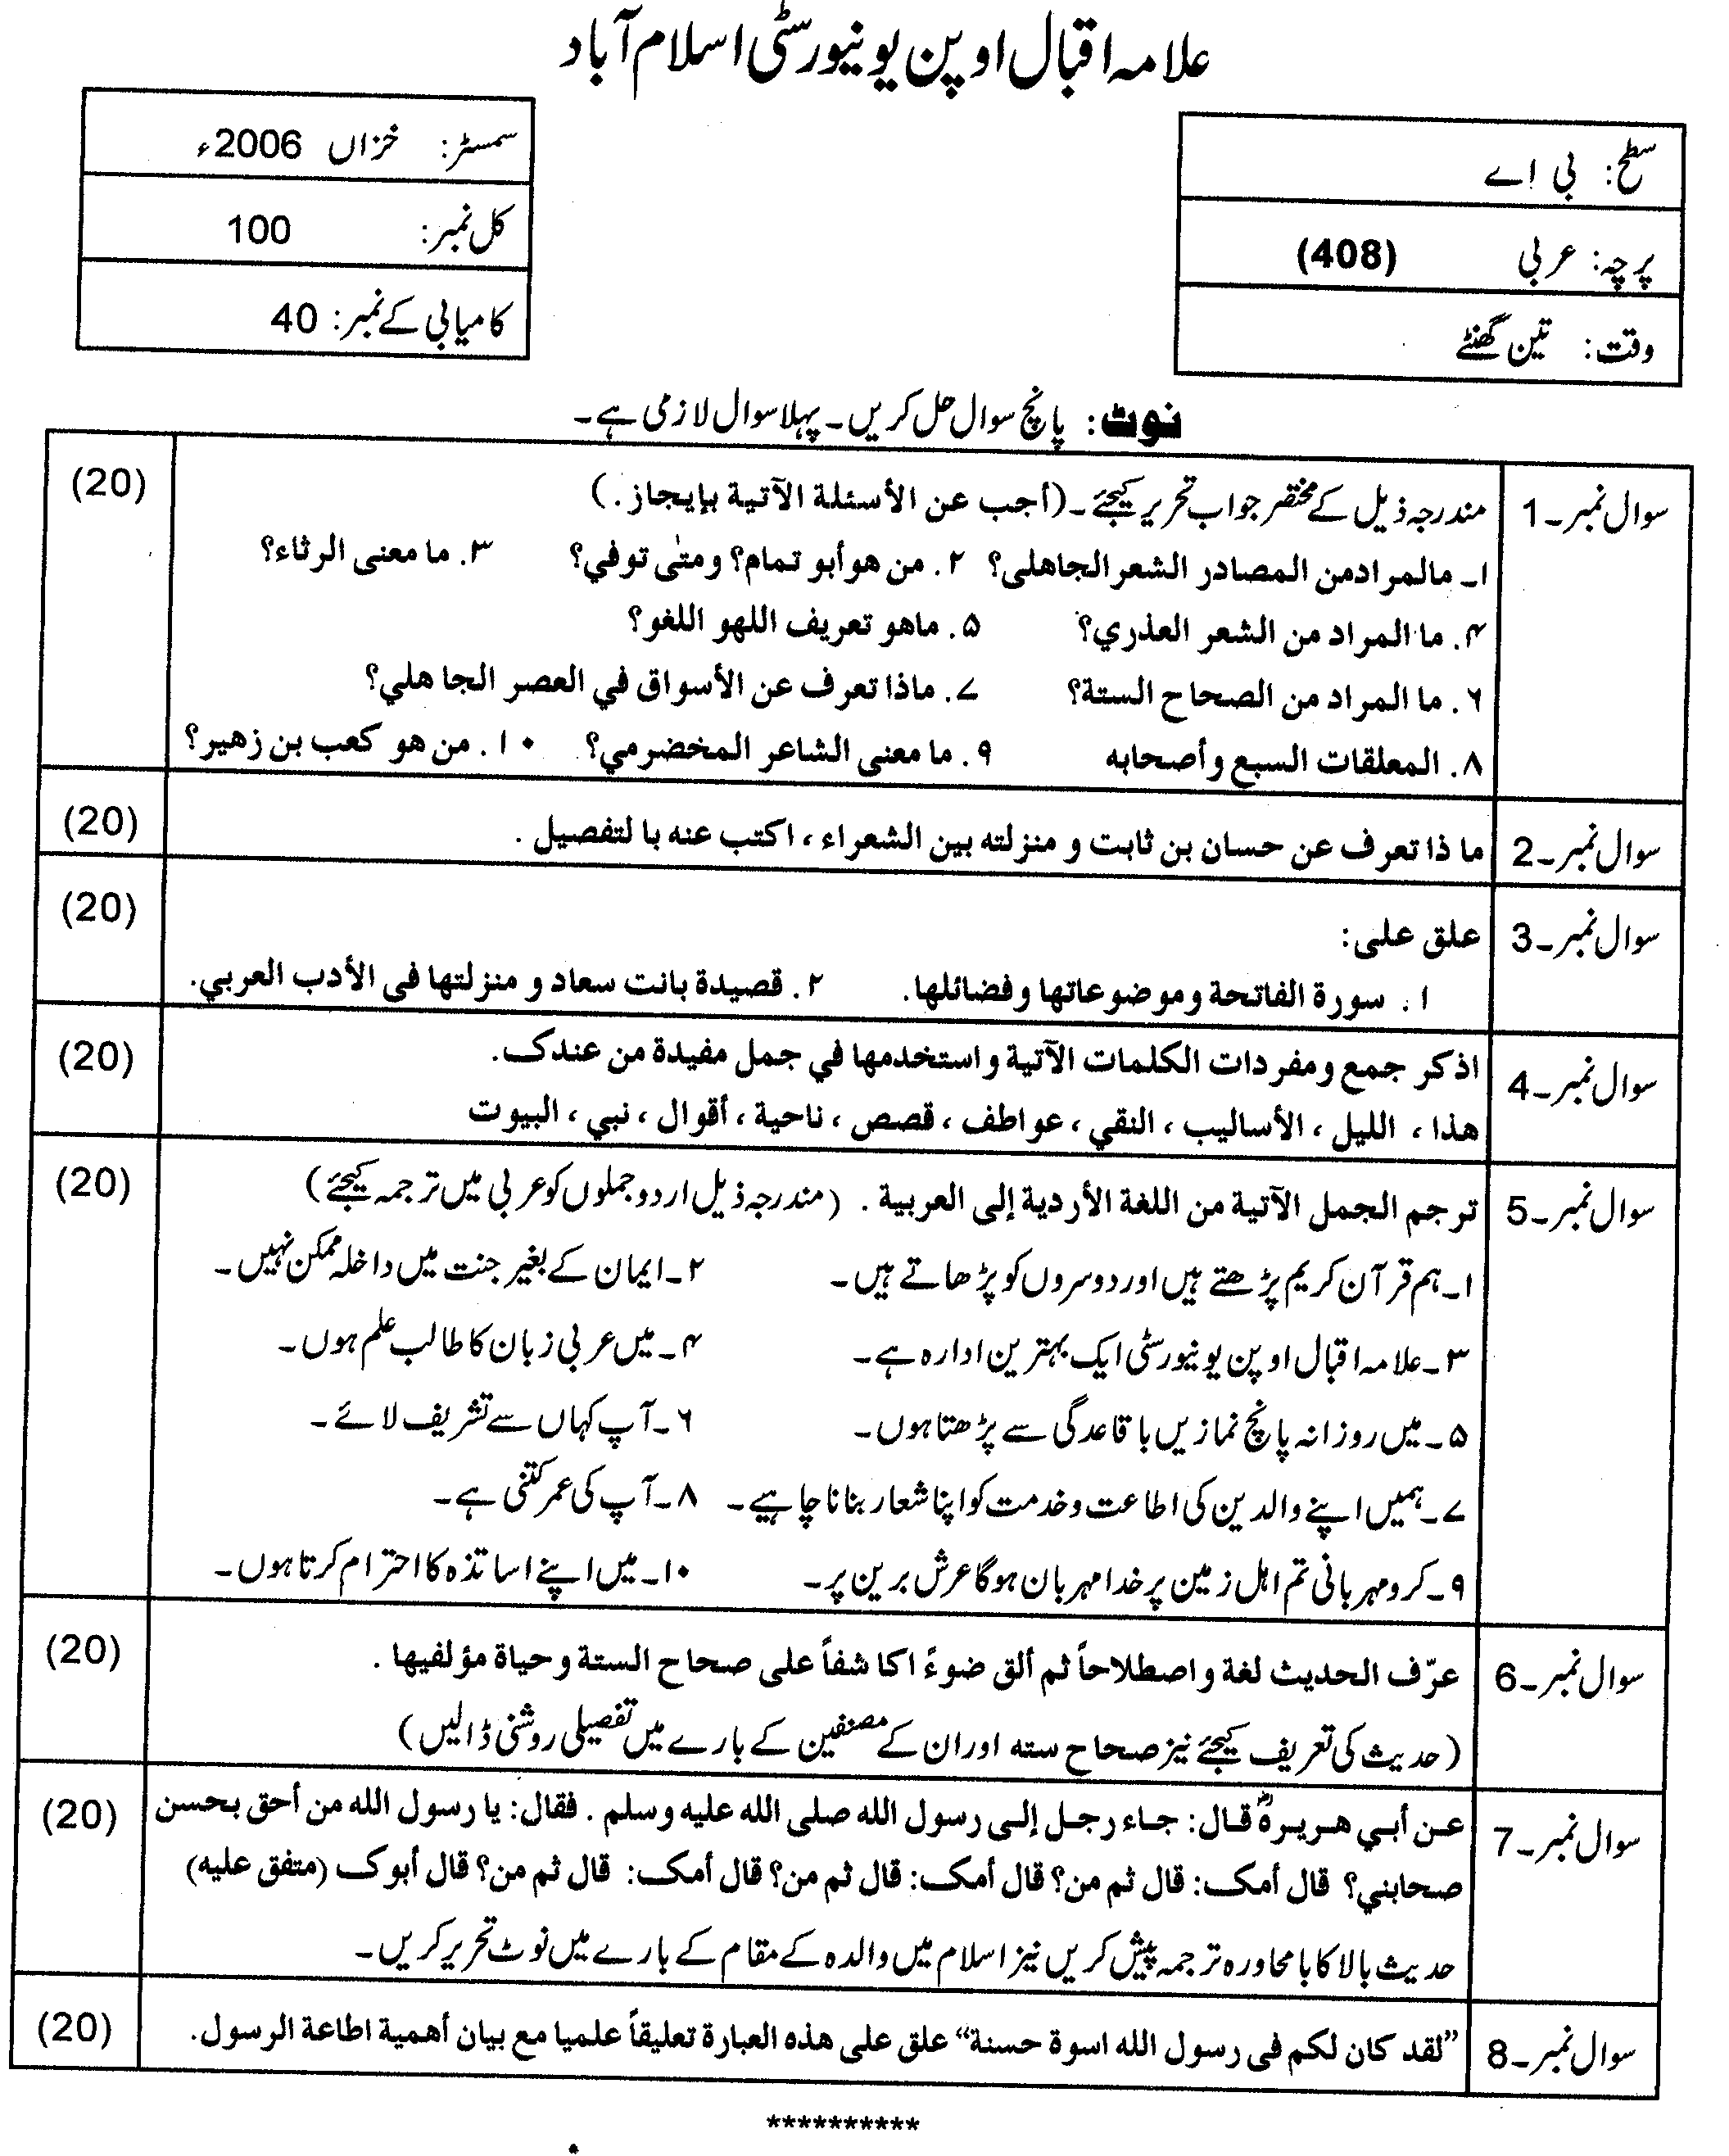 علامہ اقبال اوپن یونیورسٹی اسلام آباد
سطح: بی اے
پرچہ: عربی (408)
وقت: تین گھنٹے
سمسٹر: خزاں 2006ء
کل نمبر: 100
کامیابی کے نمبر: 40
نوٹ: پانچ سوال حل کریں۔ پہلا سوال لازمی ہے۔
سوال نمبر۔1 مندرجہ ذیل کے مختصر جواب تحریر کیجئے۔ (أجب عن الأسئلة الآتية بإيجاز.) (20)
۱۔ مالمراد من المصادر الشعر الجاهلی؟ ۲. من هو أبو تمام؟ ومتٰی توفي؟ ۳. ما معنی الرثاء؟
۴. ما المراد من الشعر العذري؟ ۵. ماهو تعريف اللهو اللغو؟
۶. ما المراد من الصحاح الستة؟ ۷. ماذا تعرف عن الأسواق في العصر الجاهلي؟
۸. المعلقات السبع وأصحابه ۹. ما معنی الشاعر المخضرمي؟ ۱۰. من هو كعب بن زهير؟
سوال نمبر۔2 ما ذا تعرف عن حسان بن ثابت و منزلته بين الشعراء، اكتب عنه با لتفصيل. (20)
سوال نمبر۔3 علق علی: (20)
۱. سورة الفاتحة وموضوعاتها وفضائلها. ۲. قصيدة بانت سعاد و منزلتها فی الأدب العربي.
سوال نمبر۔4 اذكر جمع ومفردات الكلمات الآتية واستخدمها في جمل مفيدة من عندک. (20)
هذا، الليل، الأساليب، النقي، عواطف، قصص، ناحية، أقوال، نبي، البيوت
سوال نمبر۔5 ترجم الجمل الآتية من اللغة الأردية إلی العربية. (مندرجہ ذیل اردو جملوں کو عربی میں ترجمہ کیجئے) (20)
۱۔ ہم قرآن کریم پڑھتے ہیں اور دوسروں کو پڑھاتے ہیں۔ ۲۔ ایمان کے بغیر جنت میں داخلہ ممکن نہیں۔
۳۔ علامہ اقبال اوپن یونیورسٹی ایک بہترین ادارہ ہے۔ ۴۔ میں عربی زبان کا طالب علم ہوں۔
۵۔ میں روزانہ پانچ نمازیں باقاعدگی سے پڑھتا ہوں۔ ۶۔ آپ کہاں سے تشریف لائے۔
۷۔ ہمیں اپنے والدین کی اطاعت و خدمت کو اپنا شعار بنانا چاہیے۔ ۸۔ آپ کی عمر کتنی ہے۔
۹۔ کرو مہربانی تم اہل زمین پر خدا مہربان ہوگا عرش بریں پر۔ ۱۰۔ میں اپنے اساتذہ کا احترام کرتا ہوں۔
سوال نمبر۔6 عرّف الحديث لغة واصطلاحاً ثم ألق ضوءً اكا شفاً علی صحاح الستة وحياة مؤلفيها. (20)
(حدیث کی تعریف کیجئے نیز صحاح ستہ اور ان کے مصنفین کے بارے میں تفصیلی روشنی ڈالیں)
سوال نمبر۔7 عن أبي هريرةؓ قال: جاء رجل إلی رسول الله صلی الله عليه وسلم. فقال: يا رسول الله من أحق بحسن (20)
صحابني؟ قال أمک: قال ثم من؟ قال أمک: قال ثم من؟ قال أمک: قال ثم من؟ قال أبوک (متفق عليه)
حدیث بالا کا بامحاورہ ترجمہ پیش کریں نیز اسلام میں والدہ کے مقام کے بارے میں نوٹ تحریر کریں۔
سوال نمبر۔8 ”لقد كان لكم فی رسول الله اسوة حسنة“ علق علی هذه العبارة تعليقاً علميا مع بيان أهمية اطاعة الرسول. (20)
**********